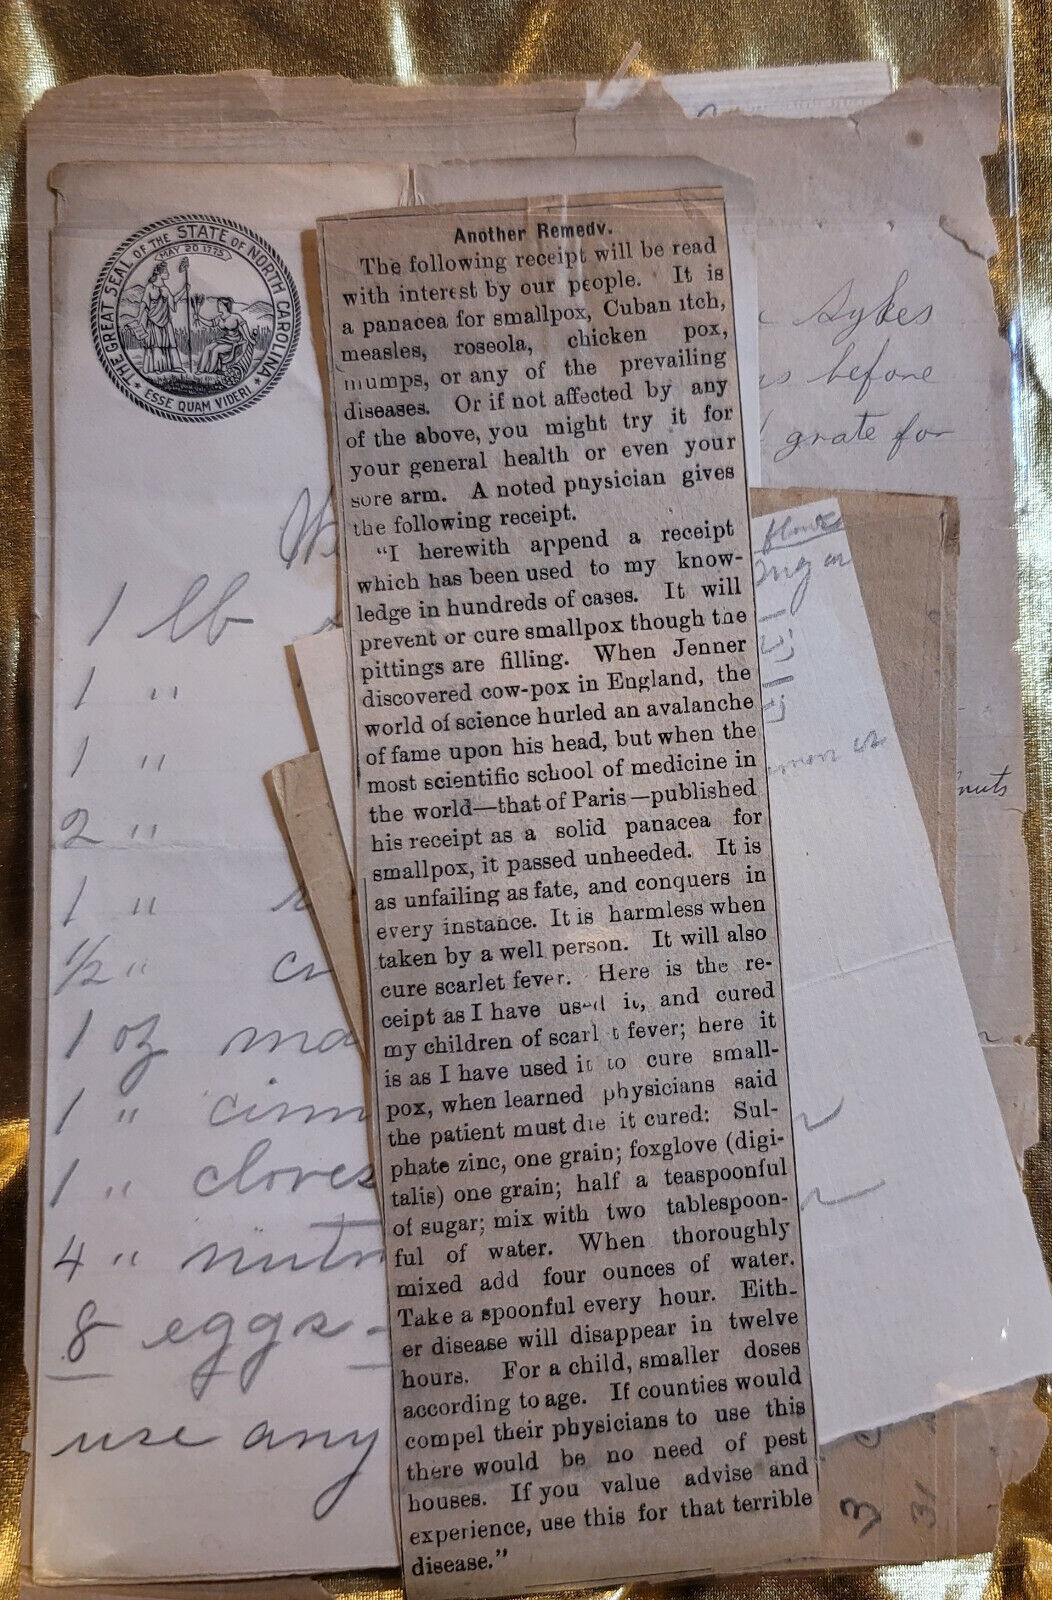 THE GREAT SEAL OF THE STATE OF NORTH CAROLINA
MAY 20 1775
ESSE QUAM VIDERI
Another Remedy.
The following receipt will be read
with interest by our people. It is
a panacea for smallpox, Cuban itch,
measles, roseola, chicken pox,
mumps, or any of the prevailing
diseases. Or if not affected by any
of the above, you might try it for
your general health or even your
sore arm. A noted physician gives
the following receipt.
"I herewith append a receipt
which has been used to my know-
ledge in hundreds of cases. It will
prevent or cure smallpox though the
pittings are filling. When Jenner
discovered cow-pox in England, the
world of science hurled an avalanche
of fame upon his head, but when the
most scientific school of medicine in
the world—that of Paris—published
his receipt as a solid panacea for
smallpox, it passed unheeded. It is
as unfailing as fate, and conquers in
every instance. It is harmless when
taken by a well person. It will also
cure scarlet fever. Here is the re-
ceipt as I have used it, and cured
my children of scarlet fever; here it
is as I have used it to cure small-
pox, when learned physicians said
the patient must die it cured: Sul-
phate zinc, one grain; foxglove (digi-
talis) one grain; half a teaspoonful
of sugar; mix with two tablespoon-
ful of water. When thoroughly
mixed add four ounces of water.
Take a spoonful every hour. Eith-
er disease will disappear in twelve
hours. For a child, smaller doses
according to age. If counties would
compel their physicians to use this
there would be no need of pest
houses. If you value advise and
experience, use this for that terrible
disease."
1 lb
1 "
1 "
2 "
1 "
1/2 "
1 oz ma
1 " cinn
1 " cloves
4 " nutm
8 eggs -
use any
Sykes
before
grate for
flour
nuts
3
31